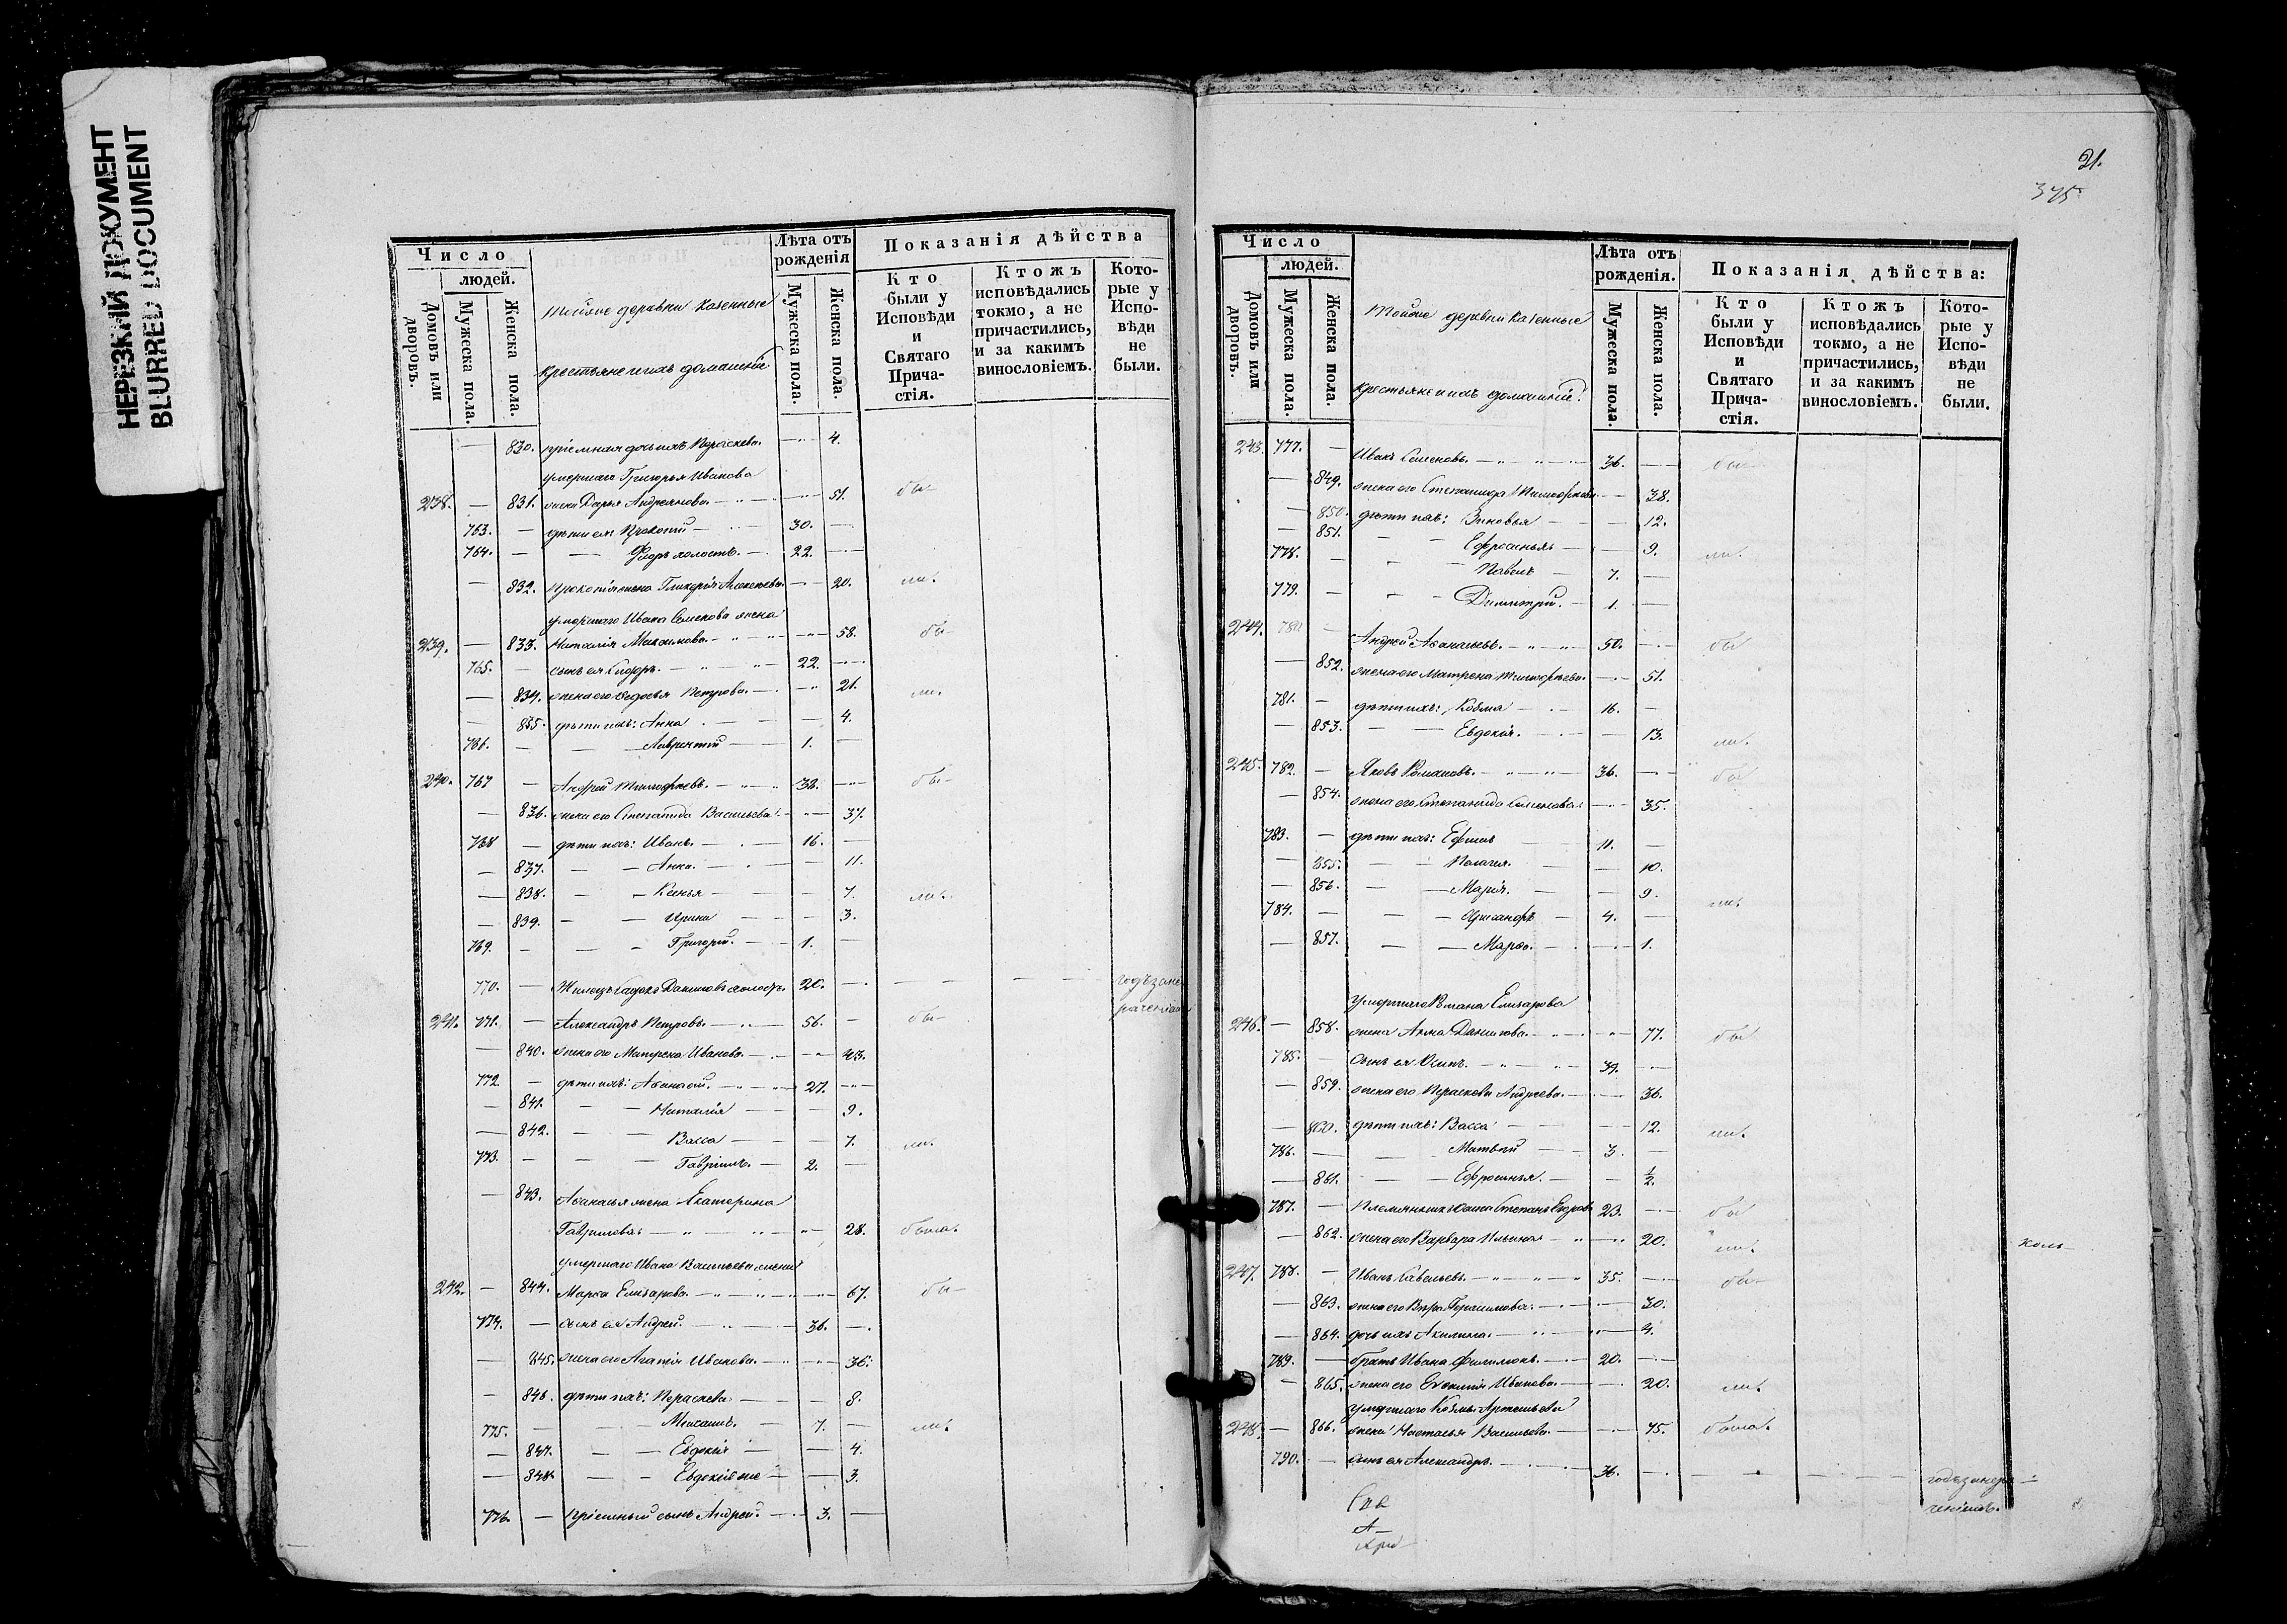 НЕРЕЗКИЙ ДОКУМЕНТ
BLURRED DOCUMENT
Число
людей.
Домовъ или дворовъ.
Мужеска пола.
Женска пола.
Тойже деревни казенные
крестьяне и ихъ домашніе
Лѣта отъ рожденія
Мужеска пола.
Женска пола.
Показанія дѣйства
Кто были у Исповѣди и Святаго Причастія.
Ктожъ исповѣдались токмо, а не причастились, и за какимъ винословіемъ.
Которые у Исповѣди не были.
— 830. пріемная дочь ихъ Параскева. — 4.
умершаго Григорья Иванова
238. — 831. жена Дарья Андреянова — — 51. бы-
763. — дѣти ея: Прокопій — 30. —
764. — — Флоръ холостъ. — 22. —
— 832. Прокопія жена Гликерія Алексѣева — 20. ли.
умершаго Ивана Семенова жена
239. — 833. Наталія Максимова — — 58. бы-
765. — сынъ ея Сидоръ. — 22. —
— 834. жена его Федосья Петрова. — 21. ли.
— 835. дѣти ихъ: Анна — — 4.
766. — — Лаврентій — 1. —
240. 767 — Андрей Тимофѣевъ. — 38. — бы-
— 836. жена его Степанида Васильева. — 37.
768 — дѣти ихъ: Иванъ. — 16. —
— 837. — — Анна. — — 11.
— 838. — — Ксенья — — 7. ли.
— 839. — — Ирина — — 3.
769. — — — Григорій. — 1. —
770. — Данилов холостъ. 20. — — —
241. 771. — Александръ Петровъ. — 56. — бы-
— 840. жена его Матрена Иванова. — 43.
772. — дѣти ихъ: Аѳанасій. — 27. —
— 841. — — Наталія — — 9.
— 842. — — Васса — — 7. ли.
773. — — — Гавріилъ. — 2. —
— 843. Аѳанасья жена Екатерина
Гаврилова — — 28. была.
умершаго Ивана Васильева жена
242. — 844. Марѳа Елизарова. — — 67. бы-
774. — сынъ ея Андрей. — 36. —
— 845. жена его Агапія Иванова. — 36.
— 846. дѣти ихъ: Параскева — — 8.
775. — — Михаилъ. — 7. — ли.
— 847. — — Евдокія — — 4.
— 848 — — Евдокія же — — 3.
776. — пріемный сынъ Андрей. — 3. —
21.
375
Число
людей.
Домовъ или дворовъ.
Мужеска пола.
Женска пола.
Тойже деревни казенные
крестьяне и ихъ домашніе.
Лѣта отъ рожденія.
Мужеска пола.
Женска пола.
Показанія дѣйства:
Кто были у Исповѣди и Святаго Причастія.
Ктожъ исповѣдались токмо, а не причастились, и за какимъ винословіемъ.
Которые у Исповѣди не были.
243. 777. — Иванъ Семеновъ. — 36. — бы-
— 849. жена его Степанида Тимофѣева — 38.
— 850. дѣти ихъ: Зиновья — — 12.
— 851. — — Ефросинья — — 9.
778. — — — Павелъ — 7. — ли.
779. — — — Димитрій. — 1. —
244. 780 — Андрей Аѳанасьевъ. — 50. — бы
— 852. жена его Матрена Тимофѣева. — 51.
781. — дѣти ихъ: Козма — 16. —
— 853. — — Евдокія. — — 13. ли.
245. 782. — Яковъ Романовъ. — 36. — бы
— 854. жена его Степанида Семенова. — 35.
783. — дѣти ихъ: Ефимъ — 11. —
— 855. — — Пелагея. — — 10.
— 856. — — Марія. — — 9.
784. — — — — 4. — ли.
— 857. — — Марѳа. — — 1.
умершаго Романа Елизарова
246. — 858. жена Анна Данилова. — — 77. бы
785. — сынъ ея Осипъ. — 39. —
— 859. жена его Параскева Андреева. — 36.
— 860. дѣти ихъ: Васса — — 12. ли.
786. — — Матвѣй — 3. —
— 861. — — Ефросинья. — — ½.
787. — Племянникъ Осипа Степанъ Егоровъ 23. — бы
— 862. жена его Варвара Ильина — 20. ли.
247. 788. — Иванъ Савельевъ. — 35. — бы-
— 863. жена его Вѣра Герасимова. — 30.
— 864. дочь ихъ Акилина. — — 4.
789. — братъ Ивана Филимонъ. — 20. —
— 865. жена его Евдокія Иванова. — 20. ли.
умершаго Козмы Артемьева
248. — 866. жена Настасья Васильева. — 75. была.
790. — сынъ ея Александръ. — 36. — — —